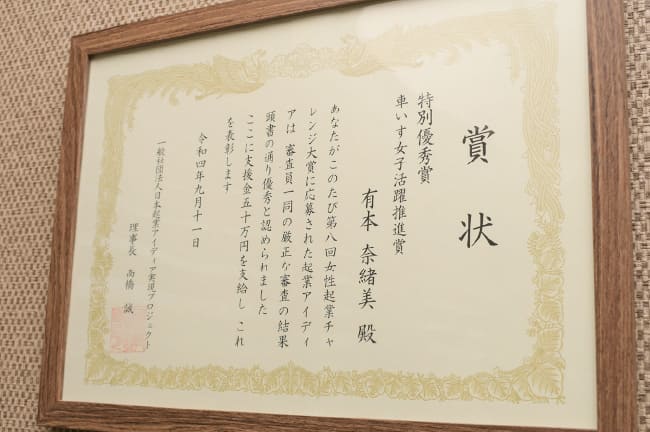 賞状
特別優秀賞
車いす女子活躍推進賞
有本 奈緒美 殿
あなたがこのたび第八回女性起業チャ
レンジ大賞に応募された起業アイディ
アは 審査員一同の厳正な審査の結果
頭書の通り優秀と認められました
ここに支援金五十万円を支給し これ
を表彰します
令和四年九月十一日
一般社団法人日本起業アイディア実現プロジェクト
理事長 髙橋 誠